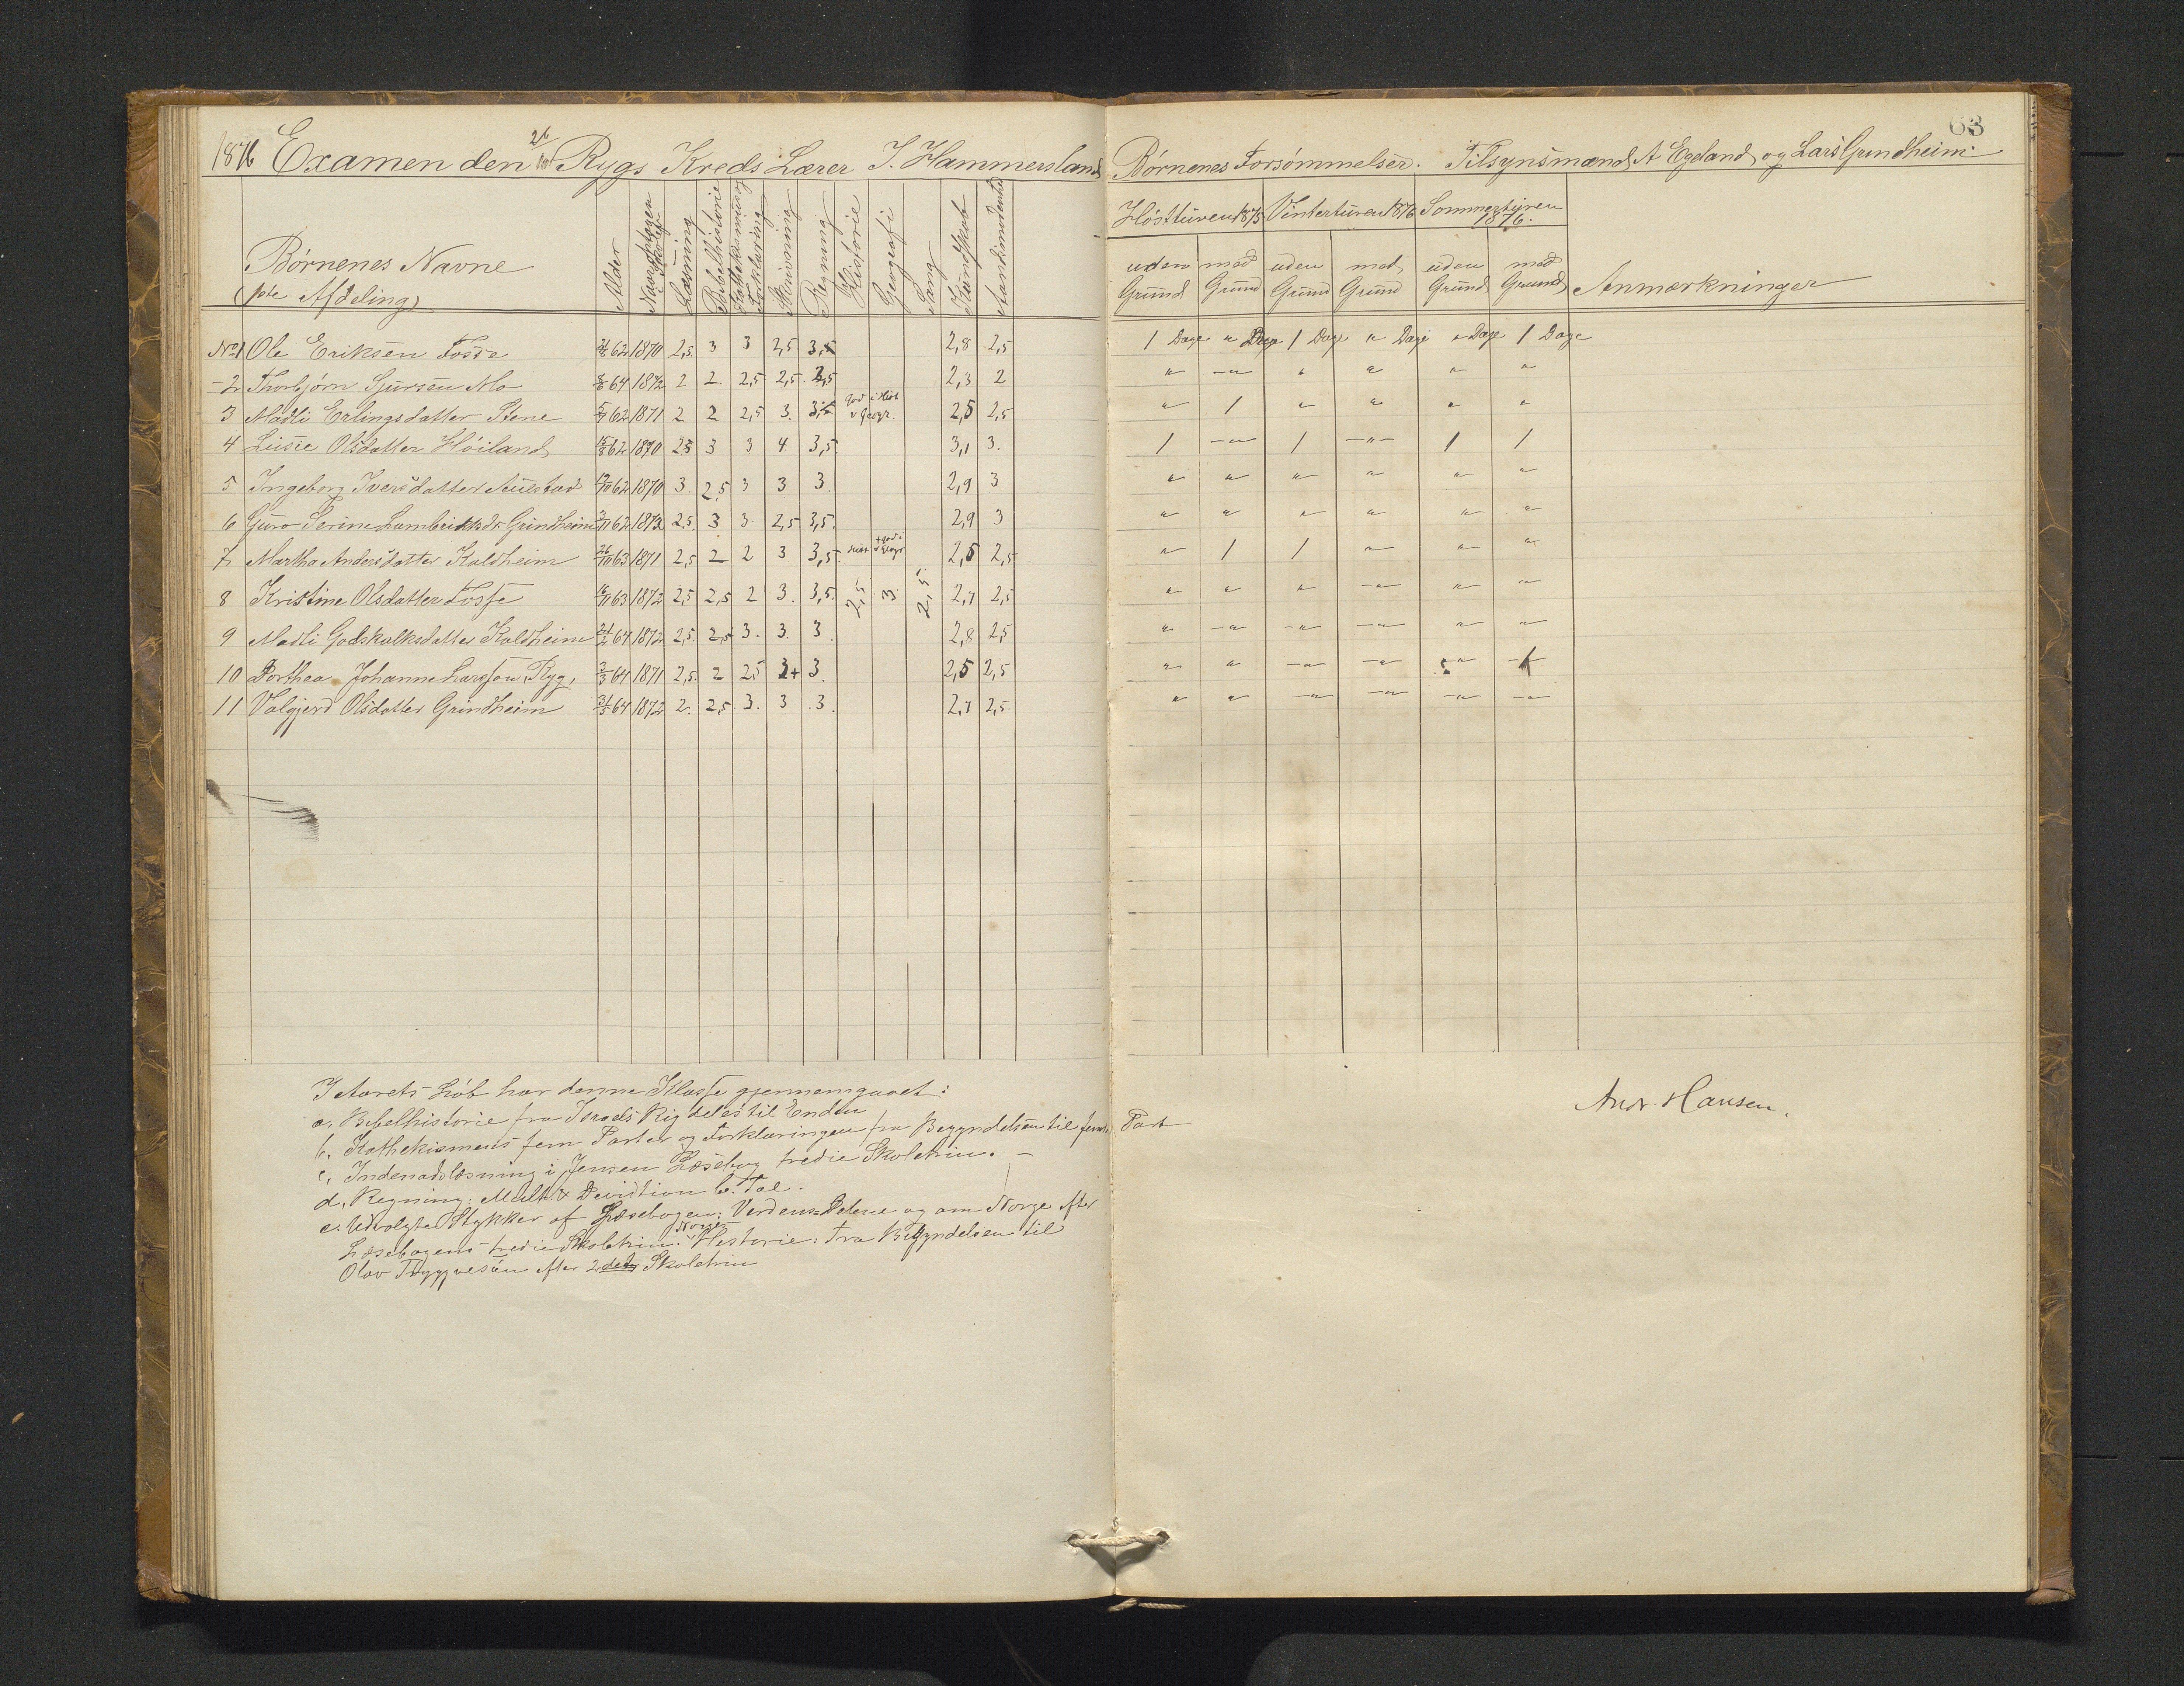 63
1876 Examen den 26/10 Rygs Kreds Lærer J. Hammersland Børnenes Forsømmelser. Tilsynsmænd A Egeland og Lars Grindheim
Høstturen 1875 Vinterturen 1876 Sommerturen 1876.
Børnenes Navne
(1ste Afdeling)
Alder
Naar optagen i Skolen
Læsning
Bibelhistorie
Katekismus og Forklaring
Skrivning
Regning
Historie
Geografi
Sang
Kundskab
uden Grund med Grund uden Grund med Grund uden Grund med Grund Anmærkninger
No 1 Ole Eriksen Fosse 62 1870 2,5. 3 3 2,5 3,5 2,8 2,5 1 Dage " Dage 1 Dage " Dage " Dage 1 Dage
- 2 Thorbjørn Sjursen Mo 64 1872 2 2. 2,5 2,5. 2,5 2,3 2 " " " " " "
3 Madli Erlingsdatter Stene 62 1871 2 2 2,5 3. 3,5 god i Hist v Geogr. 2,5 2,5 " 1 " " " "
4 Lisie Olsdatter Høiland 62 1870 2,5 3 3 4. 3,5. 3,1 3. 1 " 1 " 1 1
5 Ingeborg Iversdatter Aulestad 62 1870 3. 2,5 3 3 3. 2,9 3 " " " " " "
6 Guro Serine Lambriktsdr Grindheim 62 1872 2,5. 3 3 2,5 3,5. 2,9 3 " " " " " "
7 Martha Andersdatter Kaldheim 26/10 63 1871 2,5 2 2 3 3,5. 2,5 2,5 " 1 1 " " "
8 Kristine Olsdatter Fosse 63 1872 2,5 2,5 2 3. 3,5. 2,5 3 2,5 2,7 2,5 " " " " " "
9 Madli Godskalksdatter Kaldheim 64 1872 2,5. 2,5 3. 3. 3. 2,8 2,5 " " " " " "
10 Dorthea Johanne Larsson Ryg, 3/3 64 1871 2,5. 2 2,5 3+ 3. 2,5 2,5 " " " " "
11 Valgjerd Olsdatter Grindheim 64 1872 2. 2,5. 3. 3 .3. 2,7 2,5. " " " " " "
I Aarets Løb har denne Klasse gjennemgaaet:
a. Bibelhistorie fra Israels Rig deles til Enden
b. Kathekismens fem Parter og Forklaringen fra Begyndelsen til femte Part
c, Indenadslæsning i Jensen Læsebog tredie Skoletrin.
d, Regning: Mult. & Devidtion b. Tal.
e. Udvalgte Stykker af Læsebogen: Verdens Delene og om Norge efter
Læsebogens tredie Skoletrin. Norges Historie: Fra Begyndelsen til
Olav Tryggvesøn efter 2det Skoletrin
Andr. Hansen.